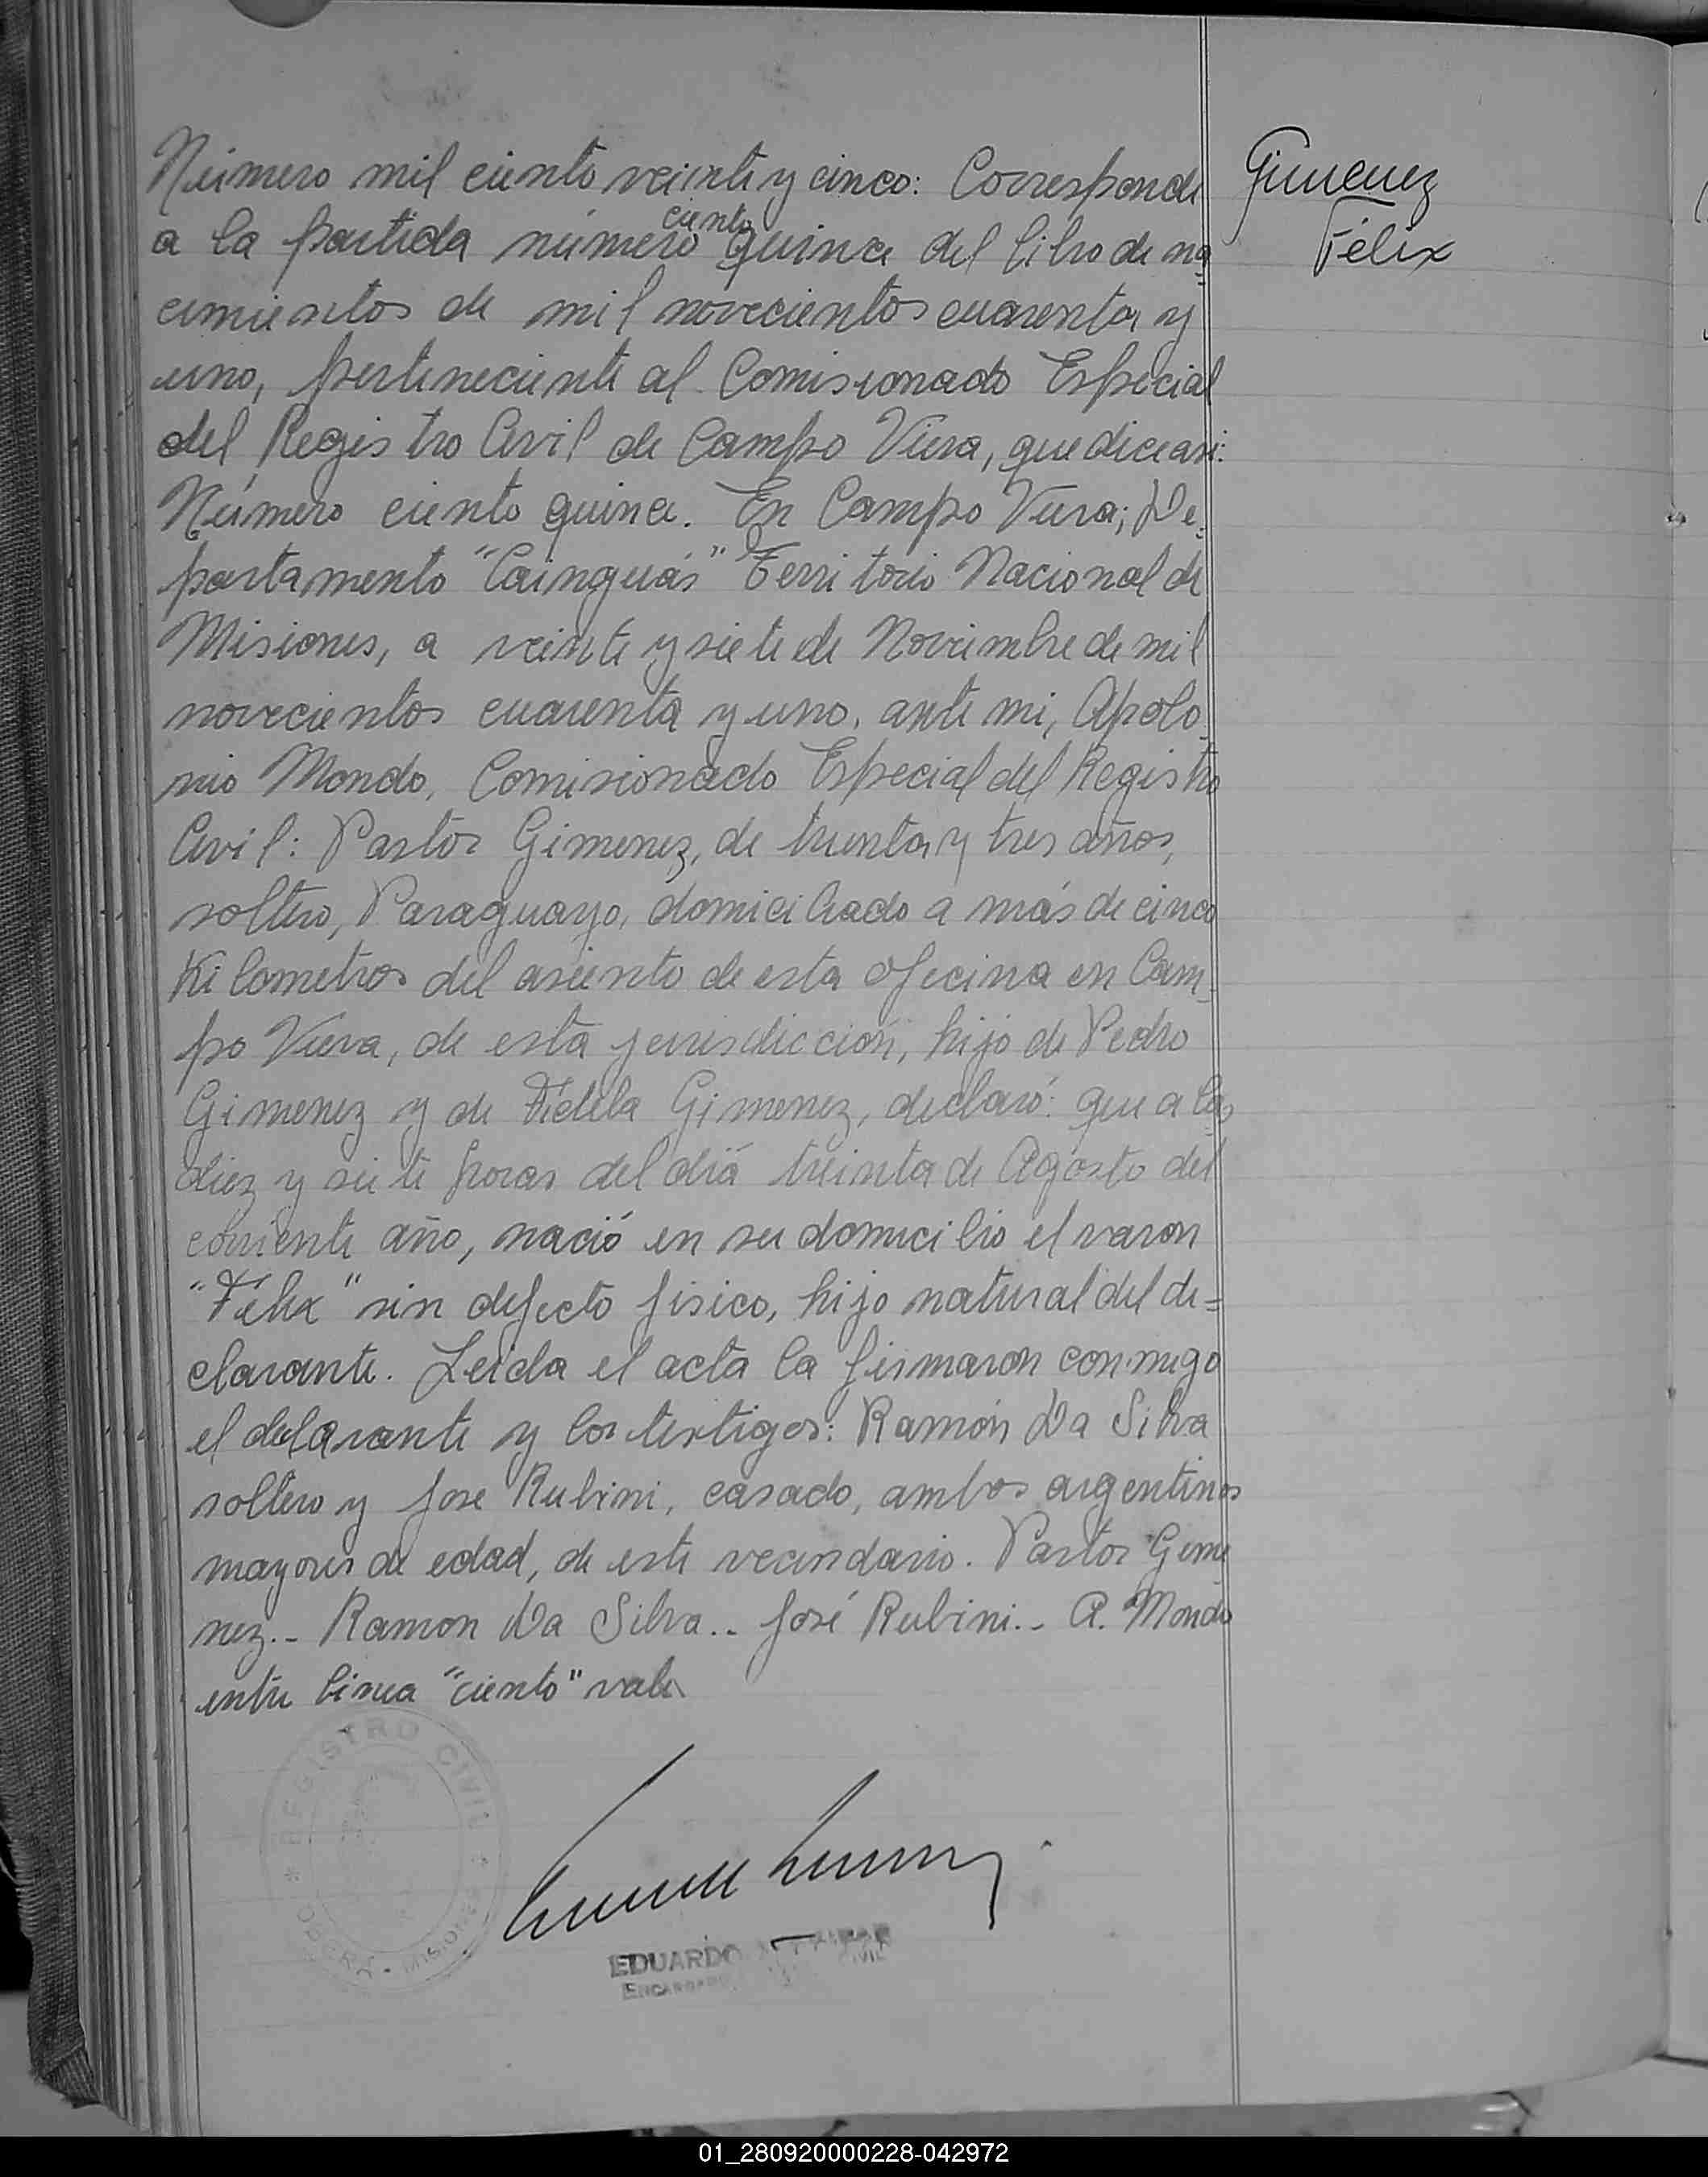 Número mil ciento veinte y cinco: Corresponde
a la partida número ciento quince del libro de na
cimientos de mil novecientos cuarenta y
uno, perteneciente al Comisionado Especial
del Registro Civil de Campo Viera, que dice asi:
Número ciento quince. En Campo Viera; De-
partamento "Cainguás" Territorio Nacional de
Misiones, a veinte y siete de Noviembre de mil
novecientos cuarenta y uno, ante mi, Apolo
nio Mondo, Comisionado Especial del Registro
Civil: Pastor Gimenez, de treinta y tres años,
soltero, Paraguayo, domiciliado a más de cinco
Kilometros del asiento de esta oficina en Cam-
po Viera, de esta jurisdicción, hijo de Pedro
Gimenez y de Fidela Gimenez, declaró: que a las
diez y siete horas del diá treinta de Agosto del
corriente año, nació en su domicilio el varon
"Félix" sin defecto fisico, hijo natural del de=
clarante. Leida el acta la firmaron conmigo
el delarante y los testigos: Ramón Da Silva
soltero y José Rubini, casado, ambos argentinos
mayores de edad, de este vecindario. Pastor Gime
nez.- Ramon Da Silva.. José Rubini.- A. Mondo
entre linea "ciento" vale
Gimenez
Félix
REGISTRO CIVIL
OBERÁ - MISIONES
EDUARDO
ENCARGADO CIVIL
01_280920000228-042972